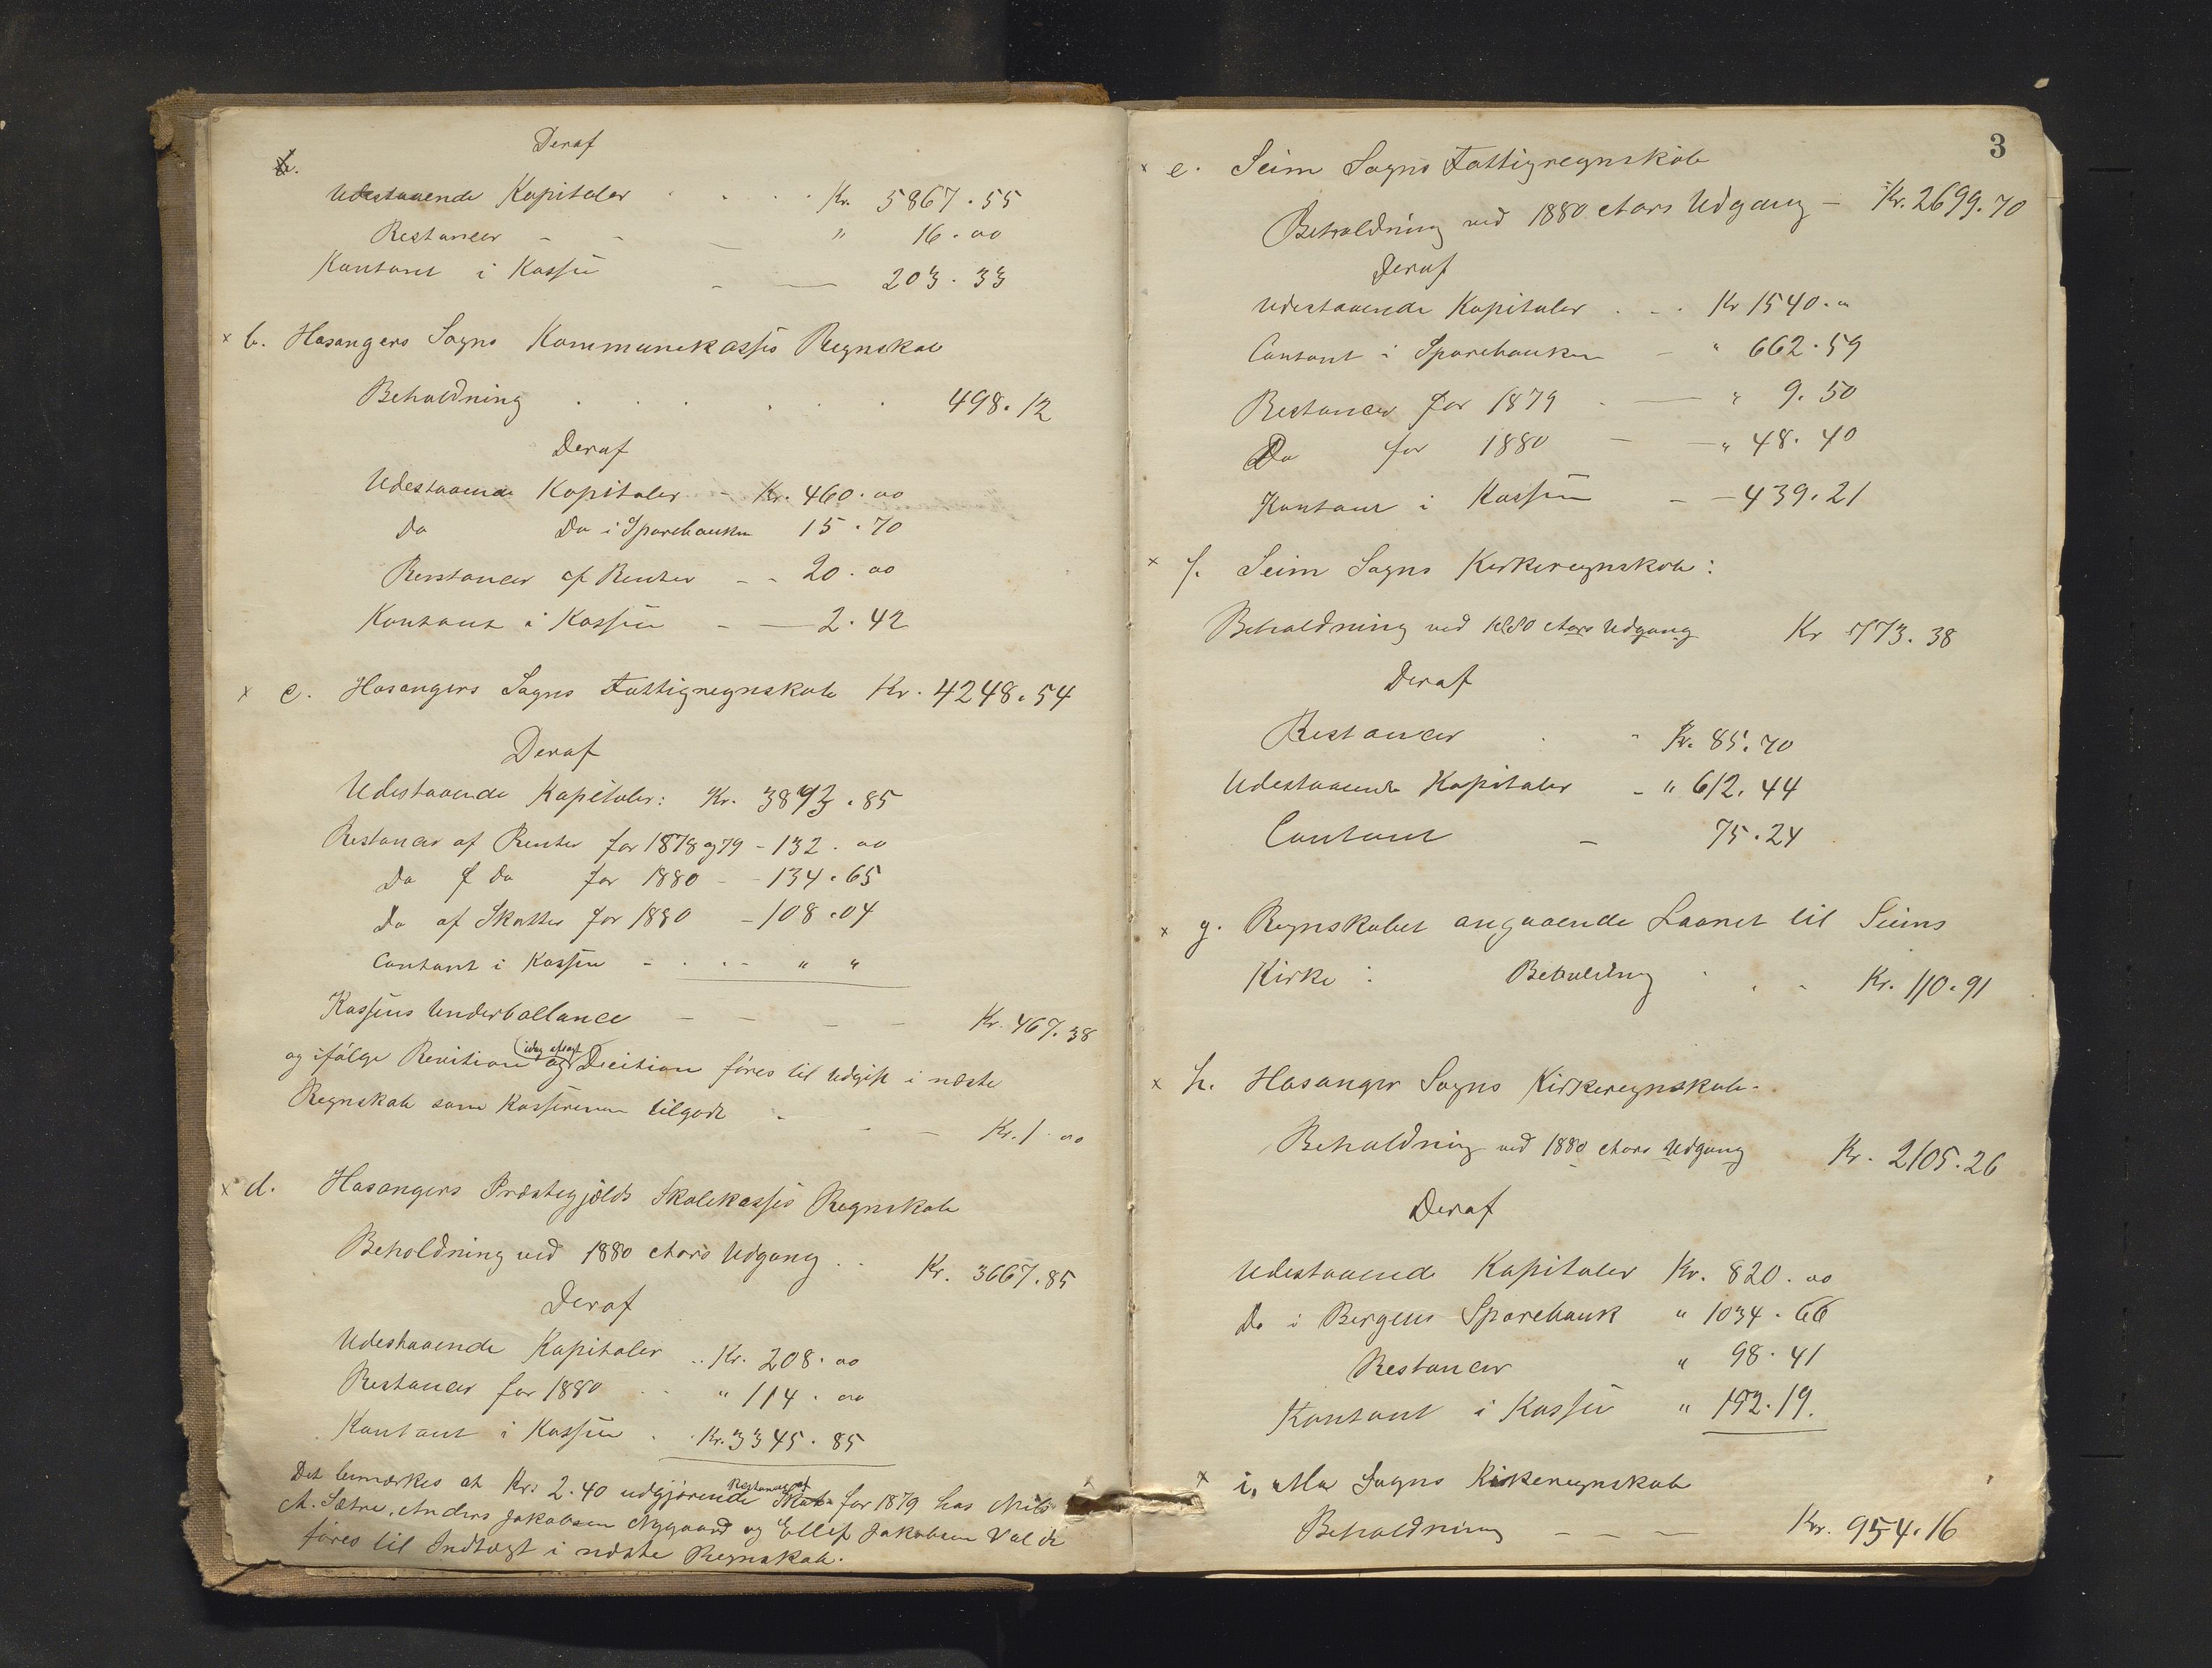 Deraf
Udestaaende Kapitaler . . . . Kr. 5867.55
Restancer – – — " 16.00
Kontant i Kassen – — 203.33
x b. Hosangers Sogns Kommunekasses Regnskab
Beholdning . . . . . . 498.12
Deraf
Udestaaende Kapitaler - Kr. 460.00
Do Do i Sparebanken 15.70
Renstancer af Renter – – 20.00
Kontant i Kassen – — 2.42
x c. Hosangers Sogns Fattigregnskab Kr. 4248.54
Deraf
Udestaaende Kapitaler: Kr. 3873.85
Restancer af Renter for 1878 og 79 – 132.00
Do af do for 1880 – – 134.65
Do af Skatter for 1880 – 108.04
Contant i Kassen – . . – " "
Kassens Underballance – – – – Kr. 467.38
og ifølge Revition og (idag afsagt) Decition føres til Udgift i næste
Regnskab som Kassereren tilgode – – — Kr. 1.00
x d. Hosangers Præstegjelds Skolekasses Regnskab
Beholdning ved 1880 Aars Udgang . . Kr. 3667.85
Deraf
Udestaaende Kapitaler .. Kr. 208.00
Restancer for 1880 . . " 114.00
Kontant i Kassen . . Kr. 3345.85
Det bemærkes at Kr. 2.40 udgjørende Restance af Skat for 1879 hos Nils
A. Sætre, Anders Jakobsen Nygaard og Ellif Jakobsen Valde
føres til Indtægt i næste Regnskab.
3
x e. Seim Sogns Fattigregnskab
Beholdning ved 1880 Aars Udgang – Kr. 2699.70
Deraf
Udestaaende Kapitaler . – . Kr 1540."
Contant i Sparebanken – " 662.59
Restancer for 1879 . — " 9.50
Do for 1880 – —" 48.40
Kontant i Kassen – – 439.21
x f. Seim Sogns Kirkeregnskab:
Beholdning ved 1880 Aars Udgang Kr 773.38
Deraf
Restancer . - Kr. 85.70
Udestaaende Kapitaler - " 612.44
Contant – 75.24
x g. Regnskabet angaaende Laanet til Seims
Kirke: Beholdning . . - Kr. 110.91
x h. Hosanger Sogns Kirkeregnskab.
Beholdning ved 1880 Aars Udgang Kr. 2105.26
Deraf
Udestaaende Kapitaler Kr. 820.00
Do i Bergens Sparebank " 1034.66
Restancer " 98.41
Kontant i Kassen " 152.19.
x i, Mo Sogns Kirkeregnskab
Beholdning – – — Kr. 954.16